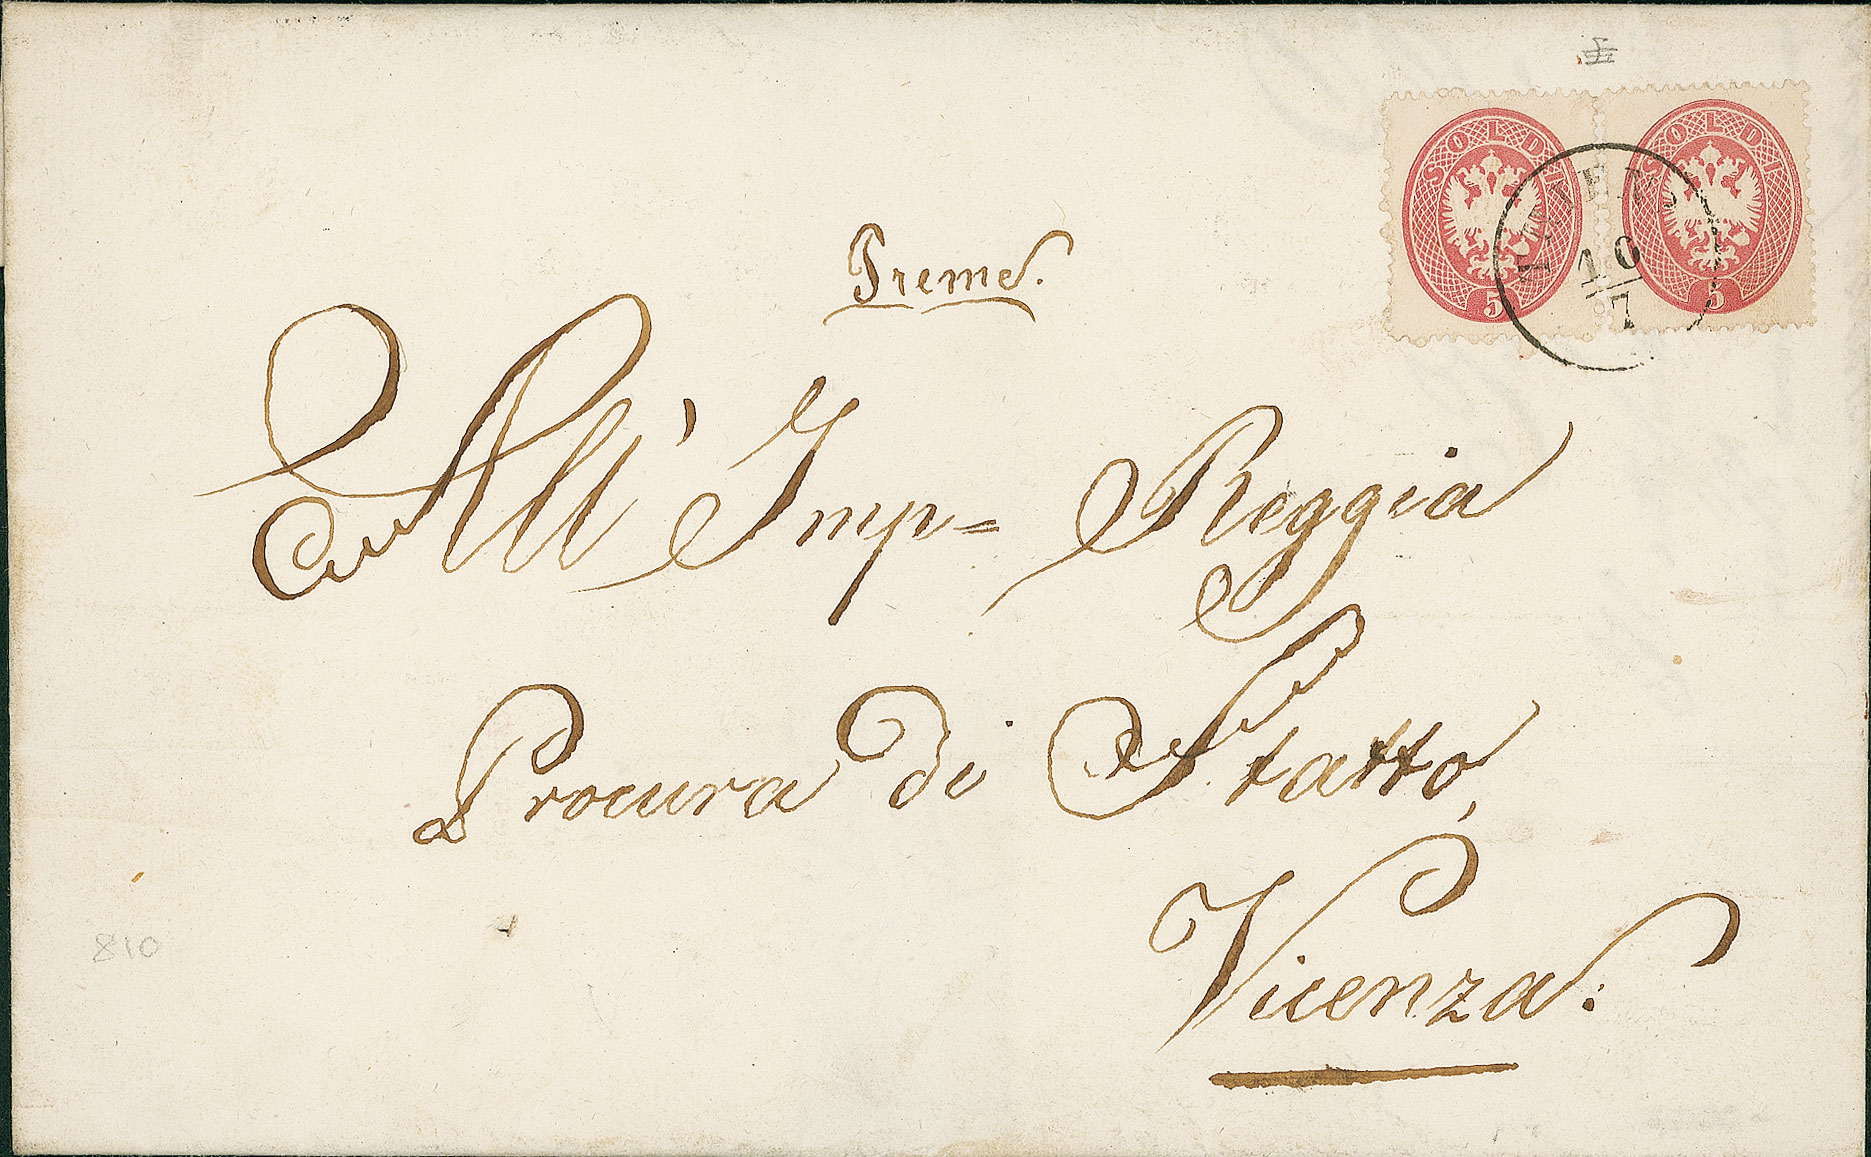 SOLDI SOLDI
5 5
10
7
Preme.
All' Imp= Reggia
Procura di Statto,
Vicenza:
810